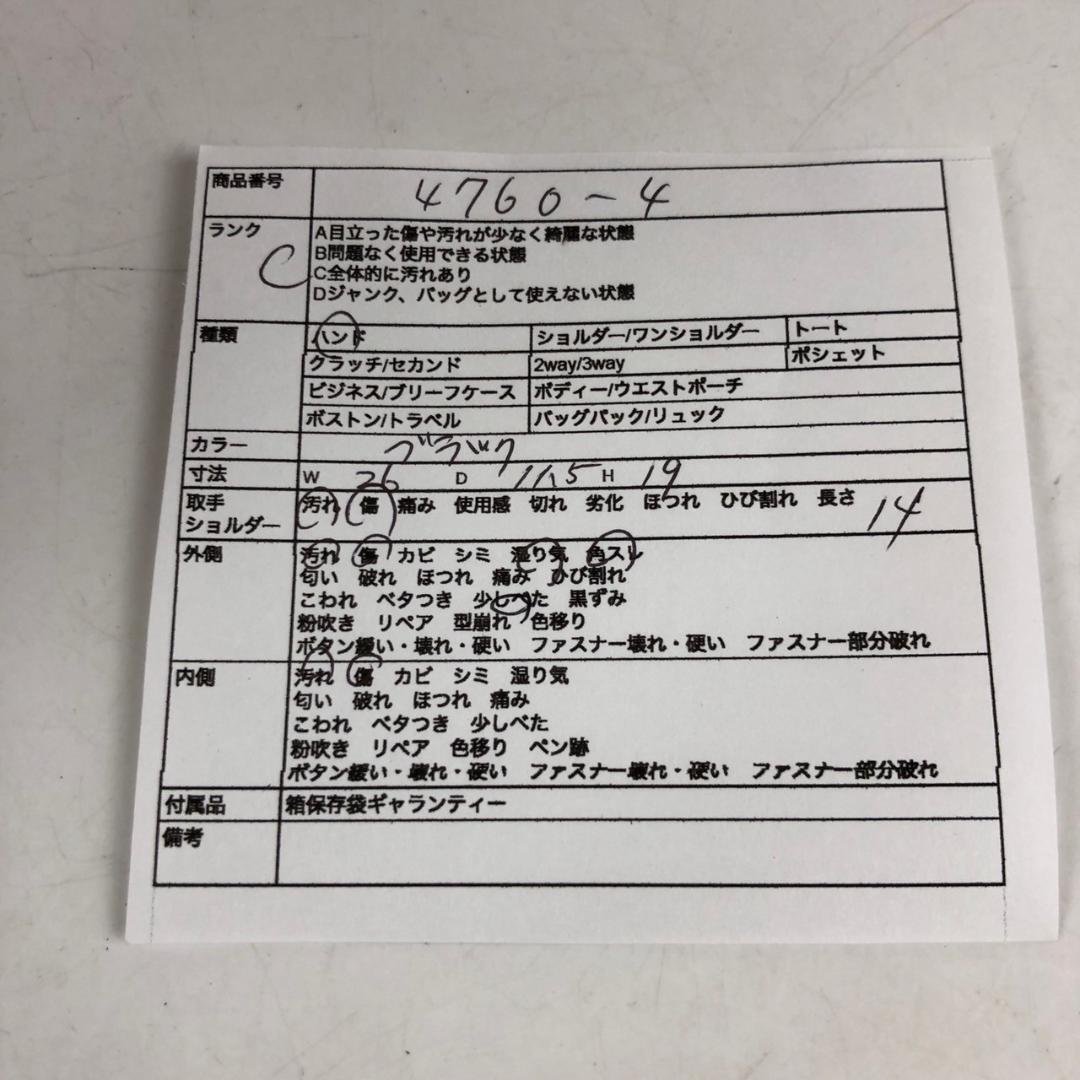 商品番号 4760-4
ランク C A目立った傷や汚れが少なく綺麗な状態
B問題なく使用できる状態
C全体的に汚れあり
Dジャンク、バッグとして使えない状態
種類 ハンド ショルダー/ワンショルダー トート
クラッチ/セカンド 2way/3way ポシェット
ビジネス/ブリーフケース ボディー/ウエストポーチ
ボストン/トラベル バッグパック/リュック
カラー ブラック
寸法 W 26 D 11.5 H 19
取手 汚れ 傷 痛み 使用感 切れ 劣化 ほつれ ひび割れ 長さ 14
ショルダー
外側 汚れ 傷 カビ シミ 湿り気 角スレ
匂い 破れ ほつれ 痛み ひび割れ
こわれ ベタつき 少しべた 黒ずみ
粉吹き リペア 型崩れ 色移り
ボタン緩い・壊れ・硬い ファスナー壊れ・硬い ファスナー部分破れ
内側 汚れ 傷 カビ シミ 湿り気
匂い 破れ ほつれ 痛み
こわれ ベタつき 少しべた
粉吹き リペア 色移り ペン跡
ボタン緩い・壊れ・硬い ファスナー壊れ・硬い ファスナー部分破れ
付属品 箱保存袋ギャランティー
備考